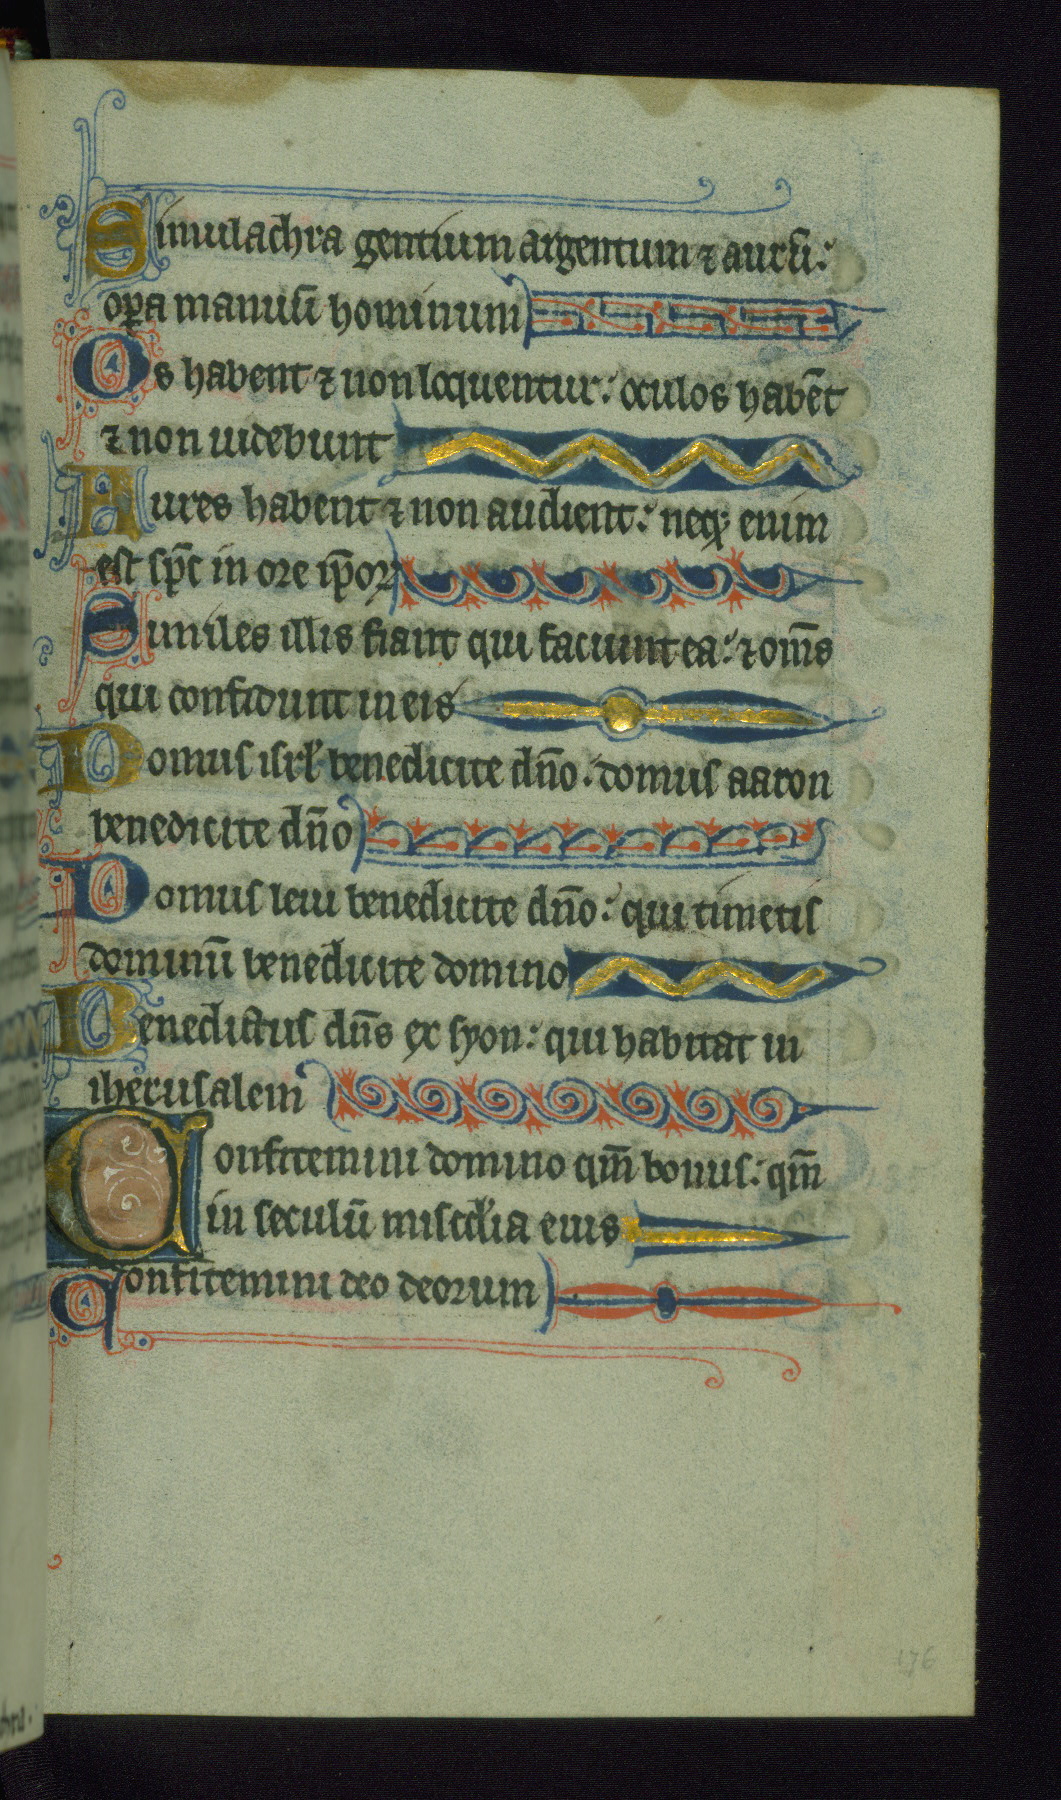 Simulachra gentium argentum ⁊ aurū:
oꝑa manuū hominum
Os habent ⁊ non loquentur: oculos habēt
⁊ non uidebunt
Aures habent ⁊ non audient: neqꝫ enim
est sp̄c in ore ip̄oꝝ
Similes illis fiant qui faciunt ea: ⁊ om̄s
qui confidunt in eis
Domus isrl̓ benedicite dn̄o: domus aaron
benedicite dn̄o
Domus leui benedicite dn̄o: qui timetis
dominū benedicite domino
Benedictus dn̄s ex syon: qui habitat in
iherusalem
Confitemini domino qm̄ bonus: qm̄
in seculū miscd̓ia eius
Confitemini deo deorum
176